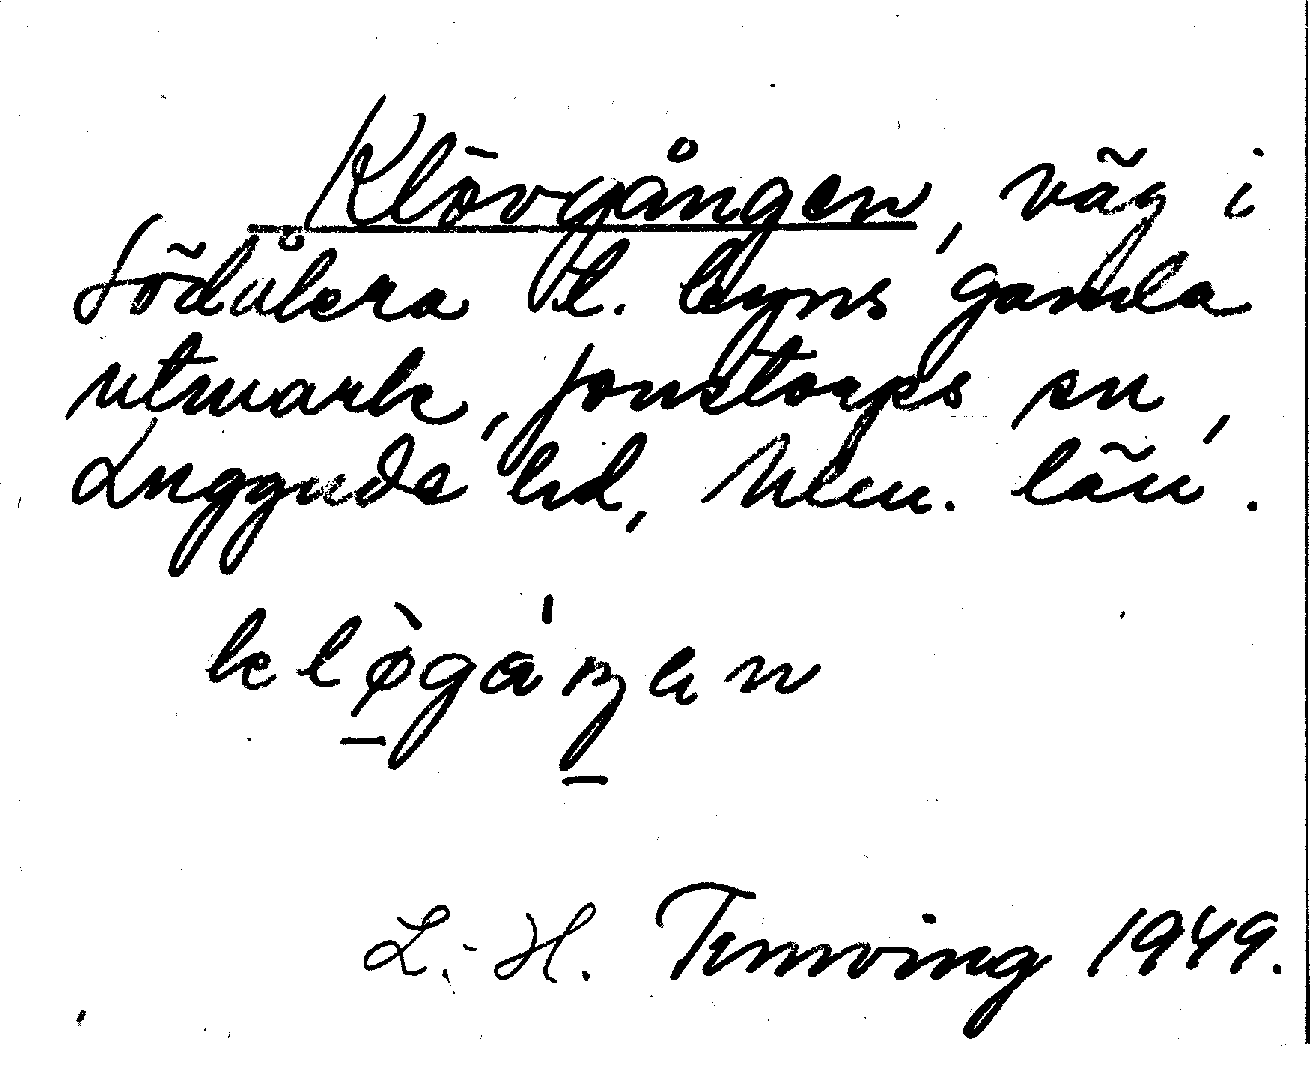 Klövgången, väg i
Södåkra l. byns gamla
utmark, Jonstorps sn,
Luggude hd, Mlm. län.
kløgåŋen
L.-H. Ternving 1949.